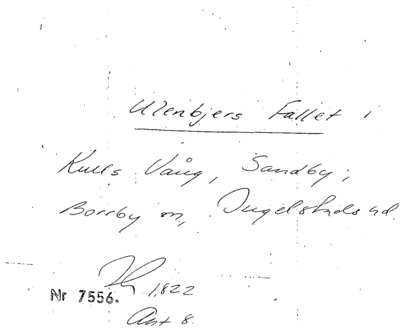 Ulenbjers Fallet i
Kulls Vång, Sandby,
Borrby sn, Ingelstads hd.
1,822
Nr 7556.
Ant 8.